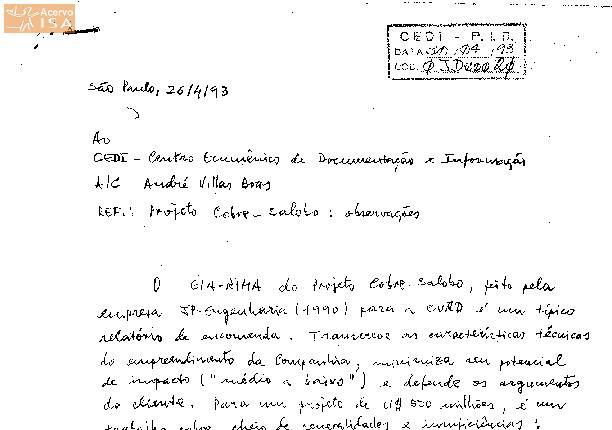 Acervo
ISA
CEDI - P.I.B.
DATA 93
COD.
São Paulo, 26/4/93
Ao
CEDI - Centro Ecumênico de Documentação e Informação
A/C André Villas Boas
REF.: Projeto Cobre-Salobo: observações
O EIA-RIMA do Projeto Cobre-Salobo, feito pela
empresa JP-Engenharia (1990) para a CVRD é um típico
relatório de encomenda. Transcreve as características técnicas
do empreendimento da Companhia, minimiza seu potencial
de impacto ("médio a baixo") e defende os argumentos
do cliente. Para um projeto de milhões, é um
cheio de generalidades e insuficiências: